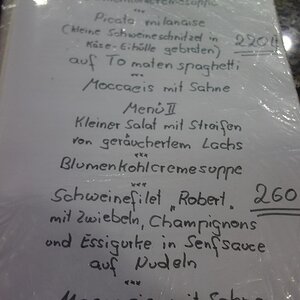 Blumenkohlcremesuppe
***
Picata milanaise
(kleine Schweineschnitzel in
Käse-E-hülle gebraten)
220,-
auf Tomatenspaghetti
***
Moccaeis mit Sahne
Menü II
Kleiner Salat mit Streifen
von geräuchertem Lachs
***
Blumenkohlcremesuppe
***
Schweinefilet „Robert"
260
mit Zwiebeln, Champignons
und Essigurke in Senfsauce
auf Nudeln
***
Moccaeis mit Sahne